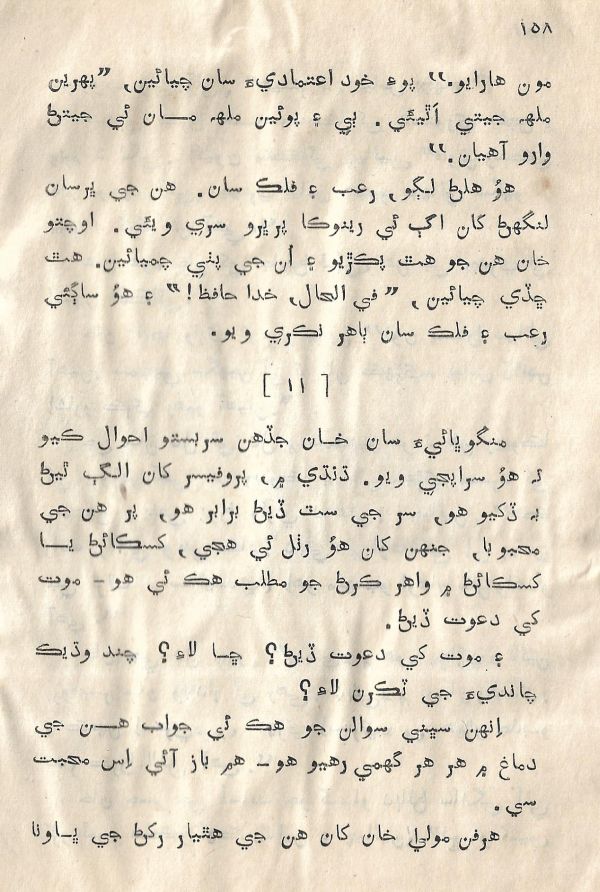 ۱۵۸
مون هارايو.“ پوءِ خود اعتماديءَ سان چيائين, ”پهرين
ملهہ جيتي اَٿيئي. ٻي ۽ پوئين ملهہ مان ئي جيتڻ
وارو آهيان.“
هوُ هلڻ لڳو, رعب ۽ فلڪ سان. هن جي ڀرسان
لنگهڻ کان اڳ ئي رينوڪا پريرو سري ويئي. اوچتو
خان هن جو هٿ پڪڙيو ۽ اُن جي پٺي چميائين. هٿ
ڇڏي چيائين, ”في الحال, خدا حافظ!“ ۽ هوُ ساڳئي
رعب ۽ فلڪ سان ٻاهر نڪري ويو.
[ ۱۱ ]
منگو ڀائيءَ سان خان جڏهن سربستو احوال ڪيو
تہ هوُ سراپجي ويو. ڌنڌي ۾, پروفيسر کان الڳ ٿيڻ
بہ ڏکيو هو, سر جي سٽ ڏيڻ برابر هو, پر هن جي
محبوبا, جنهن کان هوُ رٺل ئي هجي, کسڪائڻ يا
کسڪائڻ ۾ واهر ڪرڻ جو مطلب هڪ ئي هو – موت
کي دعوت ڏيڻ.
۽ موت کي دعوت ڏيڻ؟ ڇا لاءِ؟ چند وڌيڪ
چانديءَ جي ٽڪرن لاءِ؟
اِنهن سڀني سوالن جو هڪ ئي جواب هن جي
دماغ ۾ هر هر گهمي رهيو هو – هم باز آئي اِس محبت
سي.
هرفن مولیٰ خان کان هن جي هٿيار رکڻ جي ڀاونا